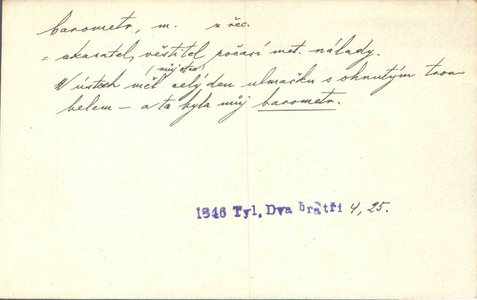 barometr, m. z řec.
= ukazatel, věštitel počasí met. nálady.
(můj otec)
V ústech měl celý den ulmačku s ohnutým trou-
belem – a to byla můj barometr.
1846 Tyl, Dva bratři 4, 25.